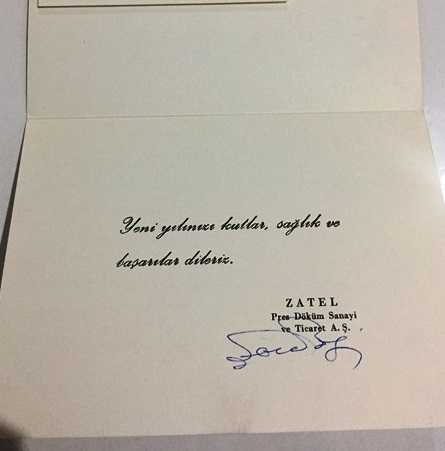 Yeni yılınızı kutlar, sağlık ve
başarılar dileriz.
ZATEL
Pres Döküm Sanayi
ve Ticaret A. Ş.